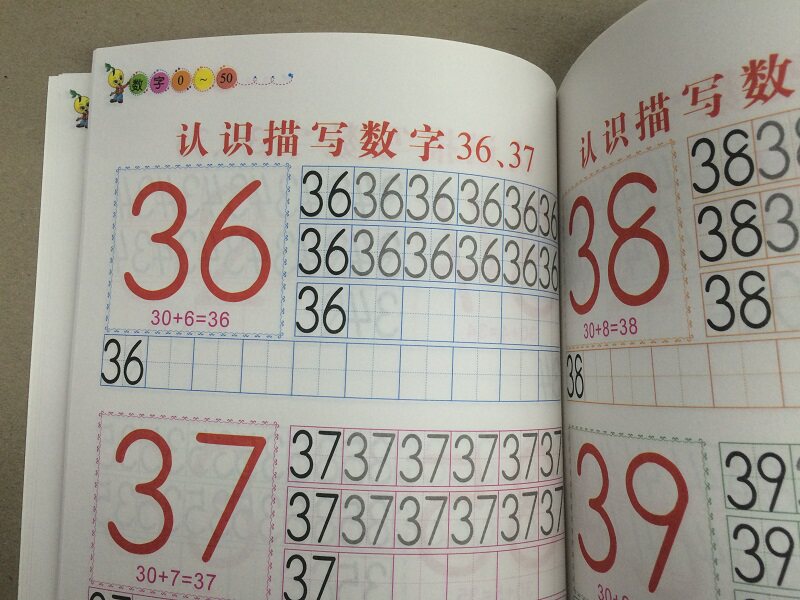 数字0~50
认识描写数字36、37
36
30+6=36
36 36 36 36 36 36
36 36 36 36 36 36
36
36
37
30+7=37
37 37 37 37 37 37
37 37 37 37 37 37
37
认识描写数
38
30+8=38
38 38
38 38
38
38
39
39
39
39